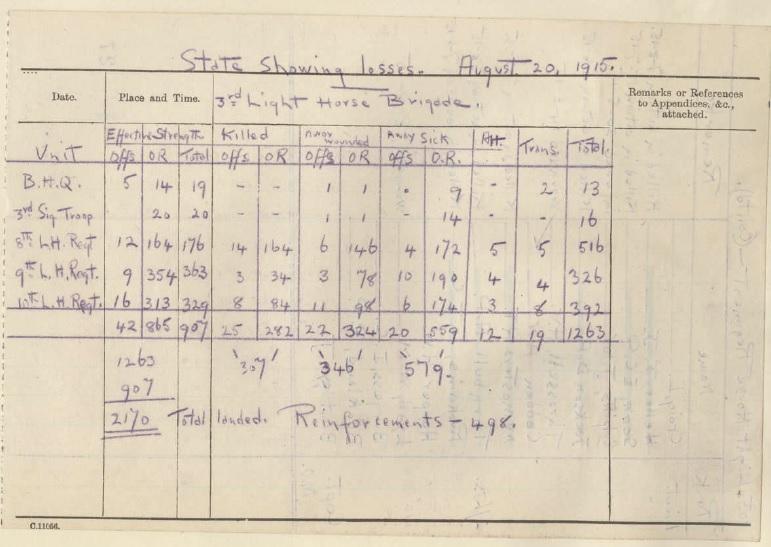 State Showing losses. August 20, 1915.
Date. Place and Time. 3rd Light Horse Brigade. Remarks or References to Appendices, &c., attached.
Effective Strength Killed Away wounded Away Sick RH. Trans. Total.
Unit Offs OR Total Offs OR Offs OR Offs O.R.
B.H.Q. 5 14 19 - - 1 1 • 9 - 2 13
3rd Sig Troop 20 20 - - 1 1 - 14 - - 16
8th L.H. Regt 12 164 176 14 164 6 146 4 172 5 5 516
9th L.H. Regt. 9 354 363 3 34 3 78 10 190 4 4 326
10th L.H. Regt. 16 313 329 8 84 11 98 6 174 3 8 392
42 865 907 25 282 22 324 20 559 12 19 1263
1263 '307' '346' '579'.
907
2170 Total landed. Reinforcements – 498.
C.11066.